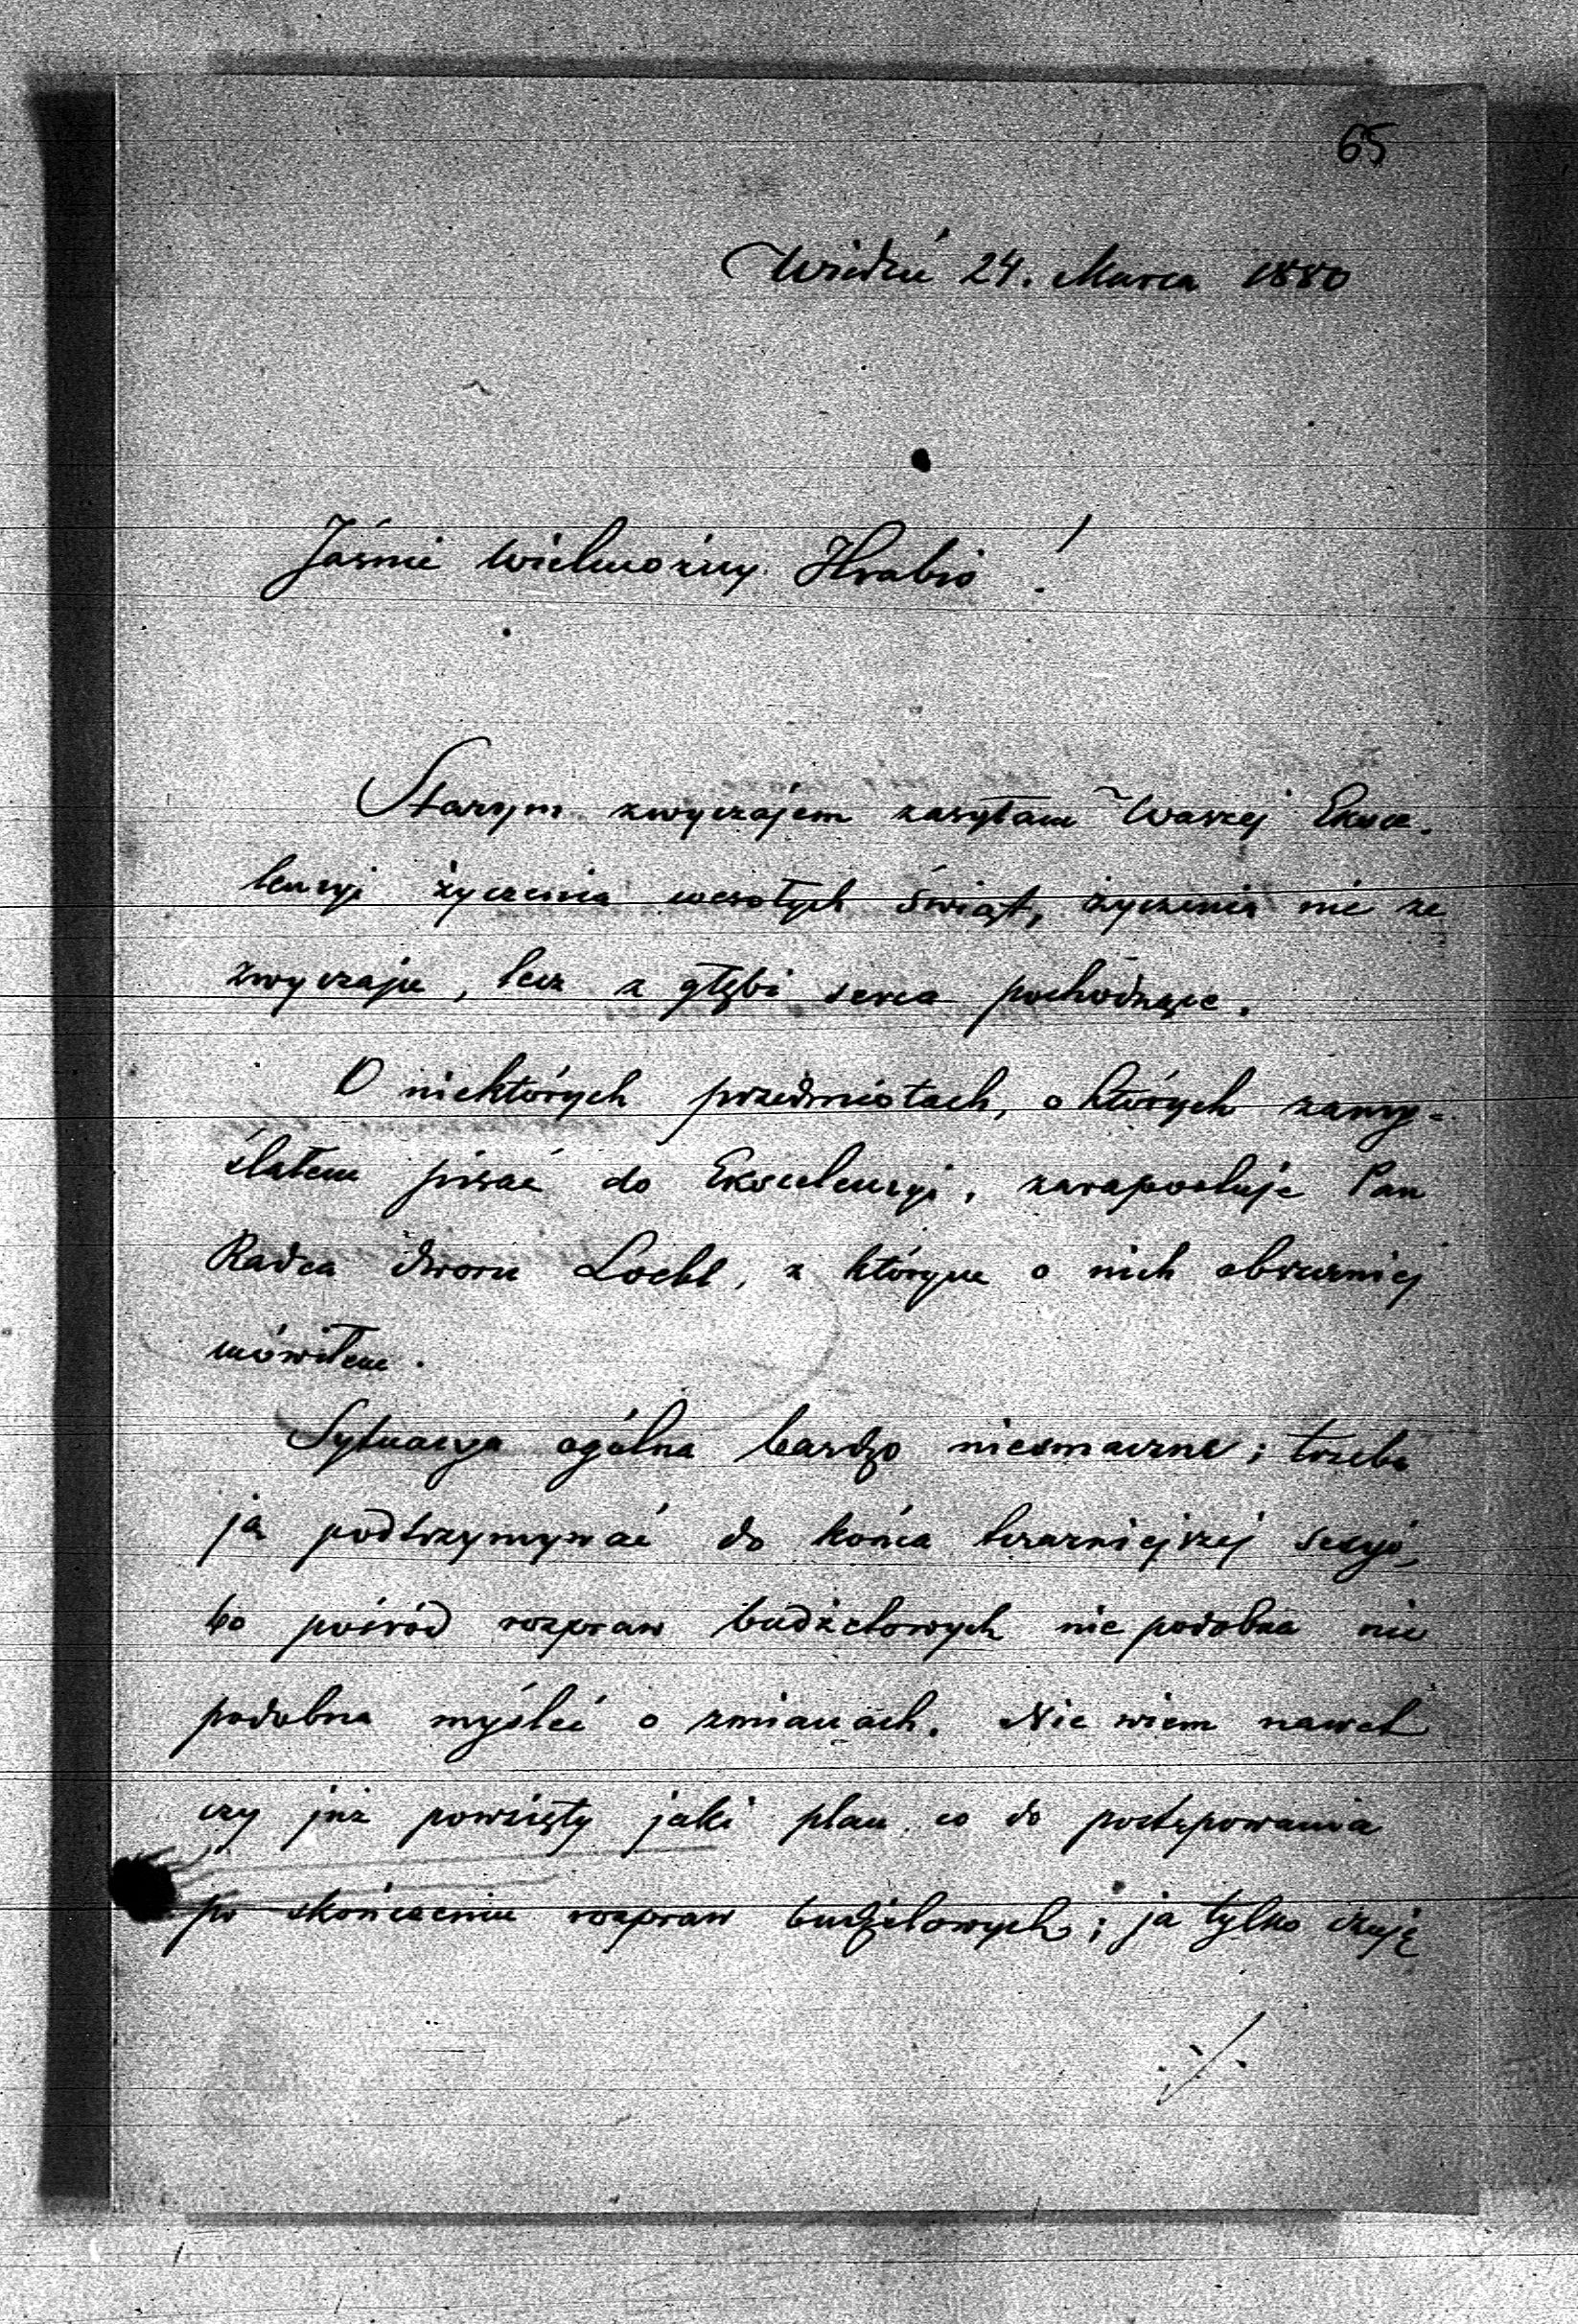 65
Wiedeń 24. Marca 1880
Jaśnie Wielmożny Hrabio!
Starym zwyczajem zasyłam Waszej Eksce-
lencyi życzenia wesołych świąt, życzenia nie ze
zwyczaju, lecz z głębi serca pochodzące.
O niektórych przedmiotach, o których zamy-
ślałem pisać do Ekscelencyi, zaraportuje Pan
Radca dworu Loebl, z którym o nich obszerniej
mówiłem.
Sytuacya ogólna bardzo niesmaczna; trzeba
ją podtrzymywać do końca teraźniejszej sesyi,
bo pośród rozpraw budżetowych nie podobna nie
podobna myśleć o zmianach. Nie wiem nawet
czy już powzięty jaki plan co do postępowania
po skończeniu rozpraw budżetowych; ja tylko czuję
./.